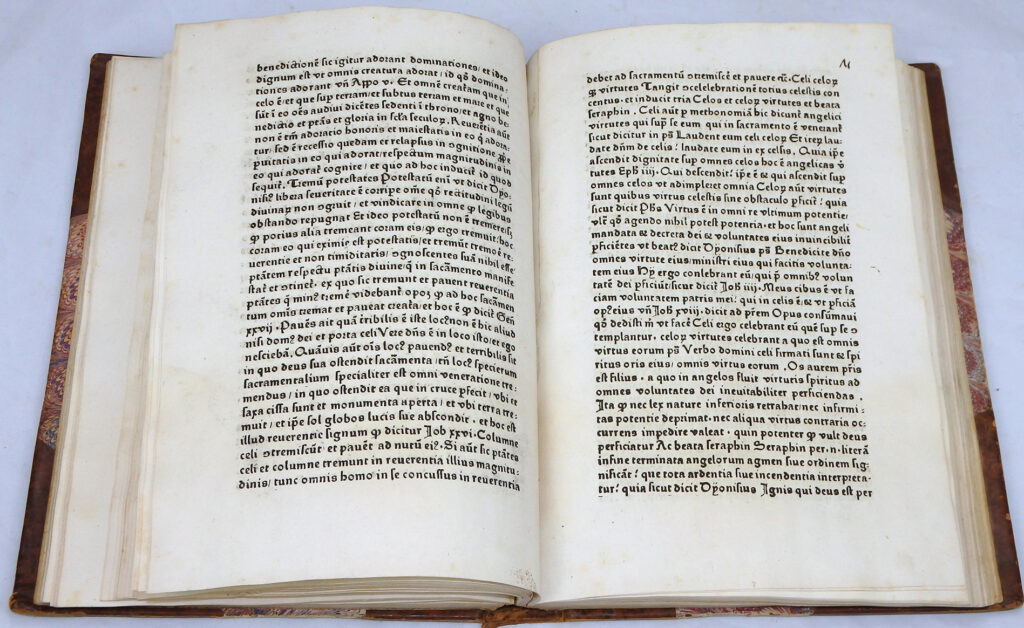 benedictionē sic igitur adorant dominationes/ et ideo
dignum est vt omnis creatura adorat/ id qď domina-
tiones adorant vñ Appo v. Et omnē creatam que in
celo ē/et que sup terram/et subtus terram et mare et que
sūt ī eo oēs audiui dicētes sedenti ī throno/et agno be
nedictio et ptās et gloria in scła seculoꝝ. Reuerētia aūt
non ē tm̄ adoratio honoris et maiestatis in eo q̄ adora-
tur/ sed ē recessio quedam et relapsus in ꝯgnitione
puitatis in eo qui adorat/respectum magnitudinis in
eo qui adorat cognite/ et quo ad hoc inducit id quod
sequit. Tremūt potestates Potestatū eni vt dicit Dyo-
nisi⁹ libera seueritate ē corripe ome qď rectitudini legū
diuinaꝝ non ꝯgruit/ et vindicare in omne ꝙ legibus
obstando repugnat Et ideo potestatū non ē tremere/
ꝙ potius alia tremeant coram eis/ ꝙ ergo tremūt/ hoc
coram eo qui eximie est potestatis/ et tremūt tremore re-
uerentie et non timiditatis/ ꝯgnoscentes suā nihil esse
ptātem respectu ptātis diuine/ q̄ in sacāmento manife
stat et ꝯtinet. ex quo sic tremunt et pauent reuerentia
ptātes q̄ min⁹ tremē videbant opoꝫ ꝙ ad hoc sacāmen
tum omīs tremat et paueat creata/ et hoc ē ꝙ dicit Geñ
xxvij. Pauēs ait quā tribilis ē iste loc⁹ non ē hic aliud
nisi dom⁹ dei et porta celi Vere dñs ē in loco isto/ et ego
nesciebā. Quāuis aūt oīs loc⁹ pauend⁹ et terribilis sit
in quo deus sua ostendit sacāmenta/ tñ loc⁹ specierum
sacramentalium specialiter est omni veneratione tre-
mendus/ in quo ostendit ea que in cruce pfecit/ vbi et
saxa cissa sunt et monumenta aperta/ et vbi terra tre-
muit/ et ipe sol globos lucis sue abscondit. et hoc est
illud reuerentie signum ꝙ dicitur Job xxvi. Columne
celi ꝯtremiscūt et pauēt ad nutū ei⁹. Si aūt sic ptātes
celi et columne tremunt in reuerentia illius magnitu-
dinis/ tunc omnis homo in se concussus in reuerentia
debet ad sacramentū ꝯtremiscē et pauere Celi celoꝝ
ꝗ virtutes Tangit ꝯcelebrationē totius celestis con
centus. et inducit tria Celos et celoꝝ virtutes et beata
seraphin. Celi aūt p methonomiā hic dicunt angelici
virtutes qui sup se eum qui in sacramento ē venerant
sicut dicitur in pš Laudent eum celi celoꝝ Et iteꝝ lau-
date dñm de celis/ laudate eum in ex celsis. Quia ipe
ascendit dignitate sup omnes celos hoc ē angelicas v
tutes Eph iiij. Qui descendit/ ipe ē & qui ascendit sup
omnes celos vt adimpleret omnia Celoꝝ aūt virtutes
sunt quibus virtutes celestis sine obstaculo pficit/ quia
sicut dicit Phs Virtus ē in omni re vltimum potentie/
vlē qď agendo nihil potest potentia. et hoc sunt angeli
mandata & decreta dei & voluntates eius inuincibili
pficiētes vt beat⁹ dicit Dyonisius pš Benedicite dño
omnes virtute eius/ministri eius qui facitis volunta-
tem eius Hÿ ergo conlebrant eū/ qui p omnib⁹ volun
tatē dei pficiūt/sicut dicit Joh iiij. Meus cibus ē vt fa
ciam voluntatem patris mei/ qui in celis ē/& vt pficiā
op⁹ eius vñ Joh xviij. dicit ad prem Opus consumaui
qď dedisti m̄ vt facē Celi ergo celebrant eū que sup se ꝯ
templantur. celoꝝ virtutes celebrant a quo est omnis
virtus eorum pš Verbo domini celi firmati sunt & spi
ritus oris eius/ omnis virtus eorum. Os autem pris
est filius. a quo in angelos fluit virtutis spiritus ad
omnes voluntates dei ineuitabiliter perficiendas.
Ita ꝙ nec lex nature inferioris retrahat/ nec infirmi-
tas potentie deprimat. nec aliqua virtus contraria oc-
currens impedire valeat. quin potenter ꝙ vult deus
perficiatur Ac beata seraphin Seraphin per .n. literā
infine terminata angelorum agmen siue ordinem sig-
nificāt/ que tota ardentia siue incendentia interpreta-
tur/ quia sicut dicit Dyonisius Ignis qui deus est per